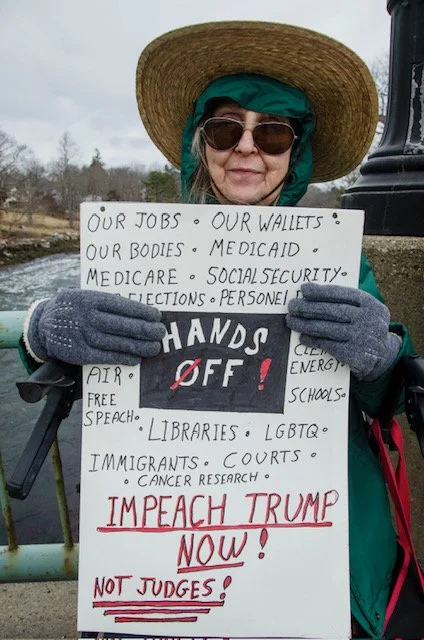 OUR JOBS • OUR WALLETS •
OUR BODIES • MEDICAID •
MEDICARE • SOCIAL SECURITY •
ELECTIONS • PERSONEL
HANDS
OFF !
AIR •
ENERGY
FREE
SPEACH •
SCHOOLS •
• LIBRARIES • LGBTQ •
IMMIGRANTS • COURTS •
• CANCER RESEARCH •
IMPEACH TRUMP
NOW !
NOT JUDGES !